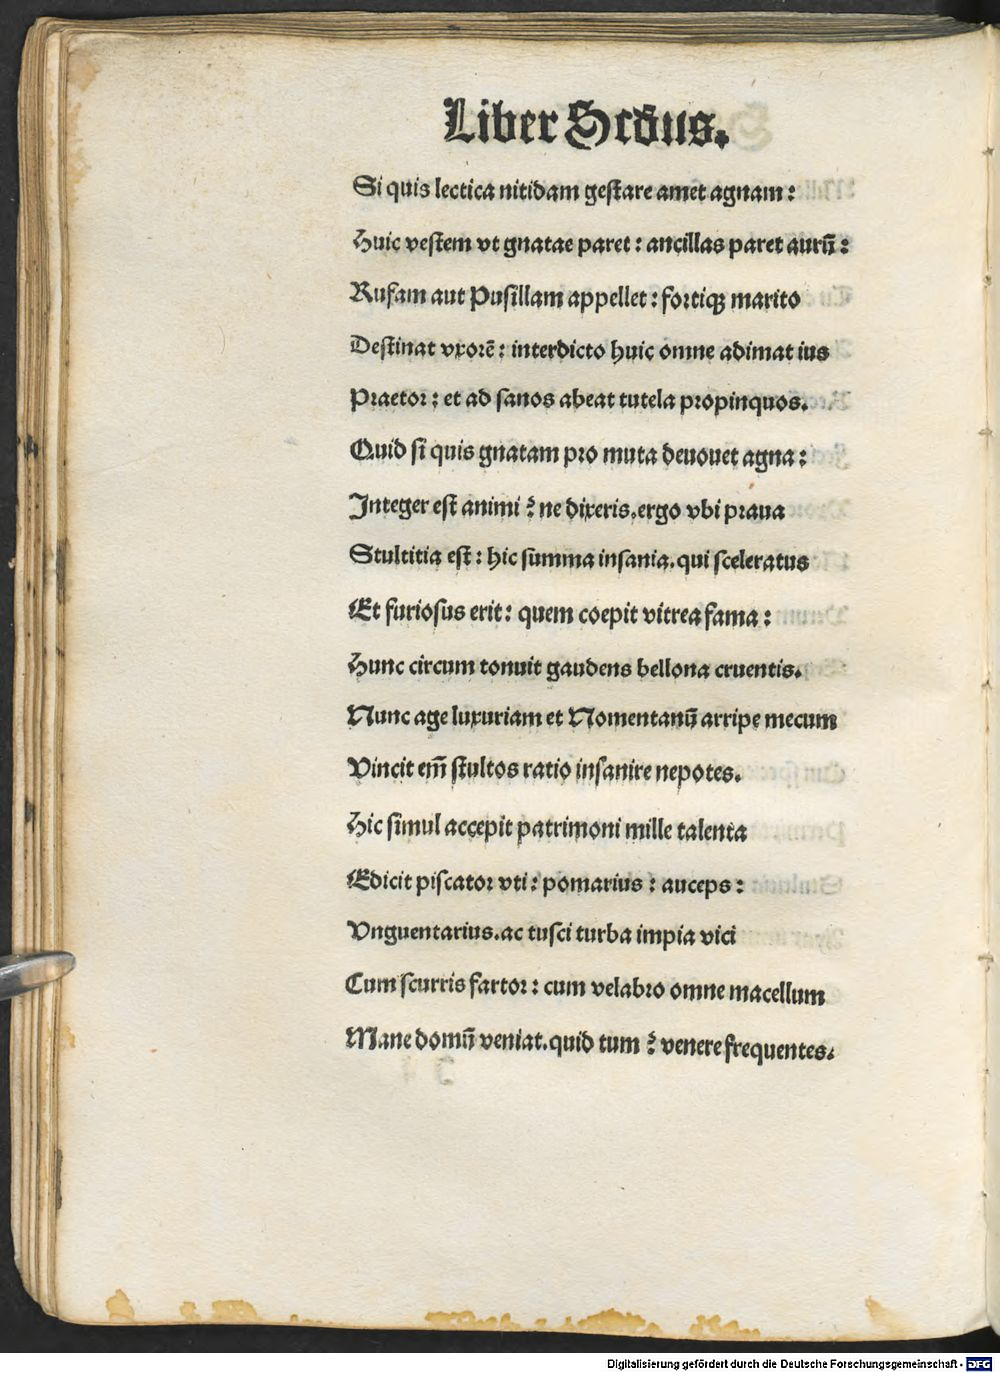 Liber Scďus.
Si quis lectica nitidam geſtare amet agnam:
Huic veſtem vt gnatae paret: ancillas paret aurū:
Rufam aut Puſillam appellet: fortiqꝫ marito
Deſtinat vxorē: interdicto huic omne adimat ius
Praetor: et ad ſanos abeat tutela propinquos.
Quid ſi quis gnatam pro muta deuouet agna:
Integer eſt animi? ne dixeris.ergo vbi praua
Stultitia eſt: hic ſumma inſania.qui ſceleratus
Et furioſus erit: quem coepit vitrea fama:
Hunc circum tonuit gaudens bellona cruentis.
Nunc age luxuriam et Nomentanū arripe mecum
Vincit em̄ ſtultos ratio inſanire nepotes.
Hic ſimul accepit patrimoni mille talenta
Edicit piſcator vti: pomarius: auceps:
Vnguentarius.ac tuſci turba impia vici
Cum ſcurris fartor: cum velabro omne macellum
Mane domū veniat.quid tum? venere frequentes.
Digitalisierung gefördert durch die Deutsche Forschungsgemeinschaft - DFG